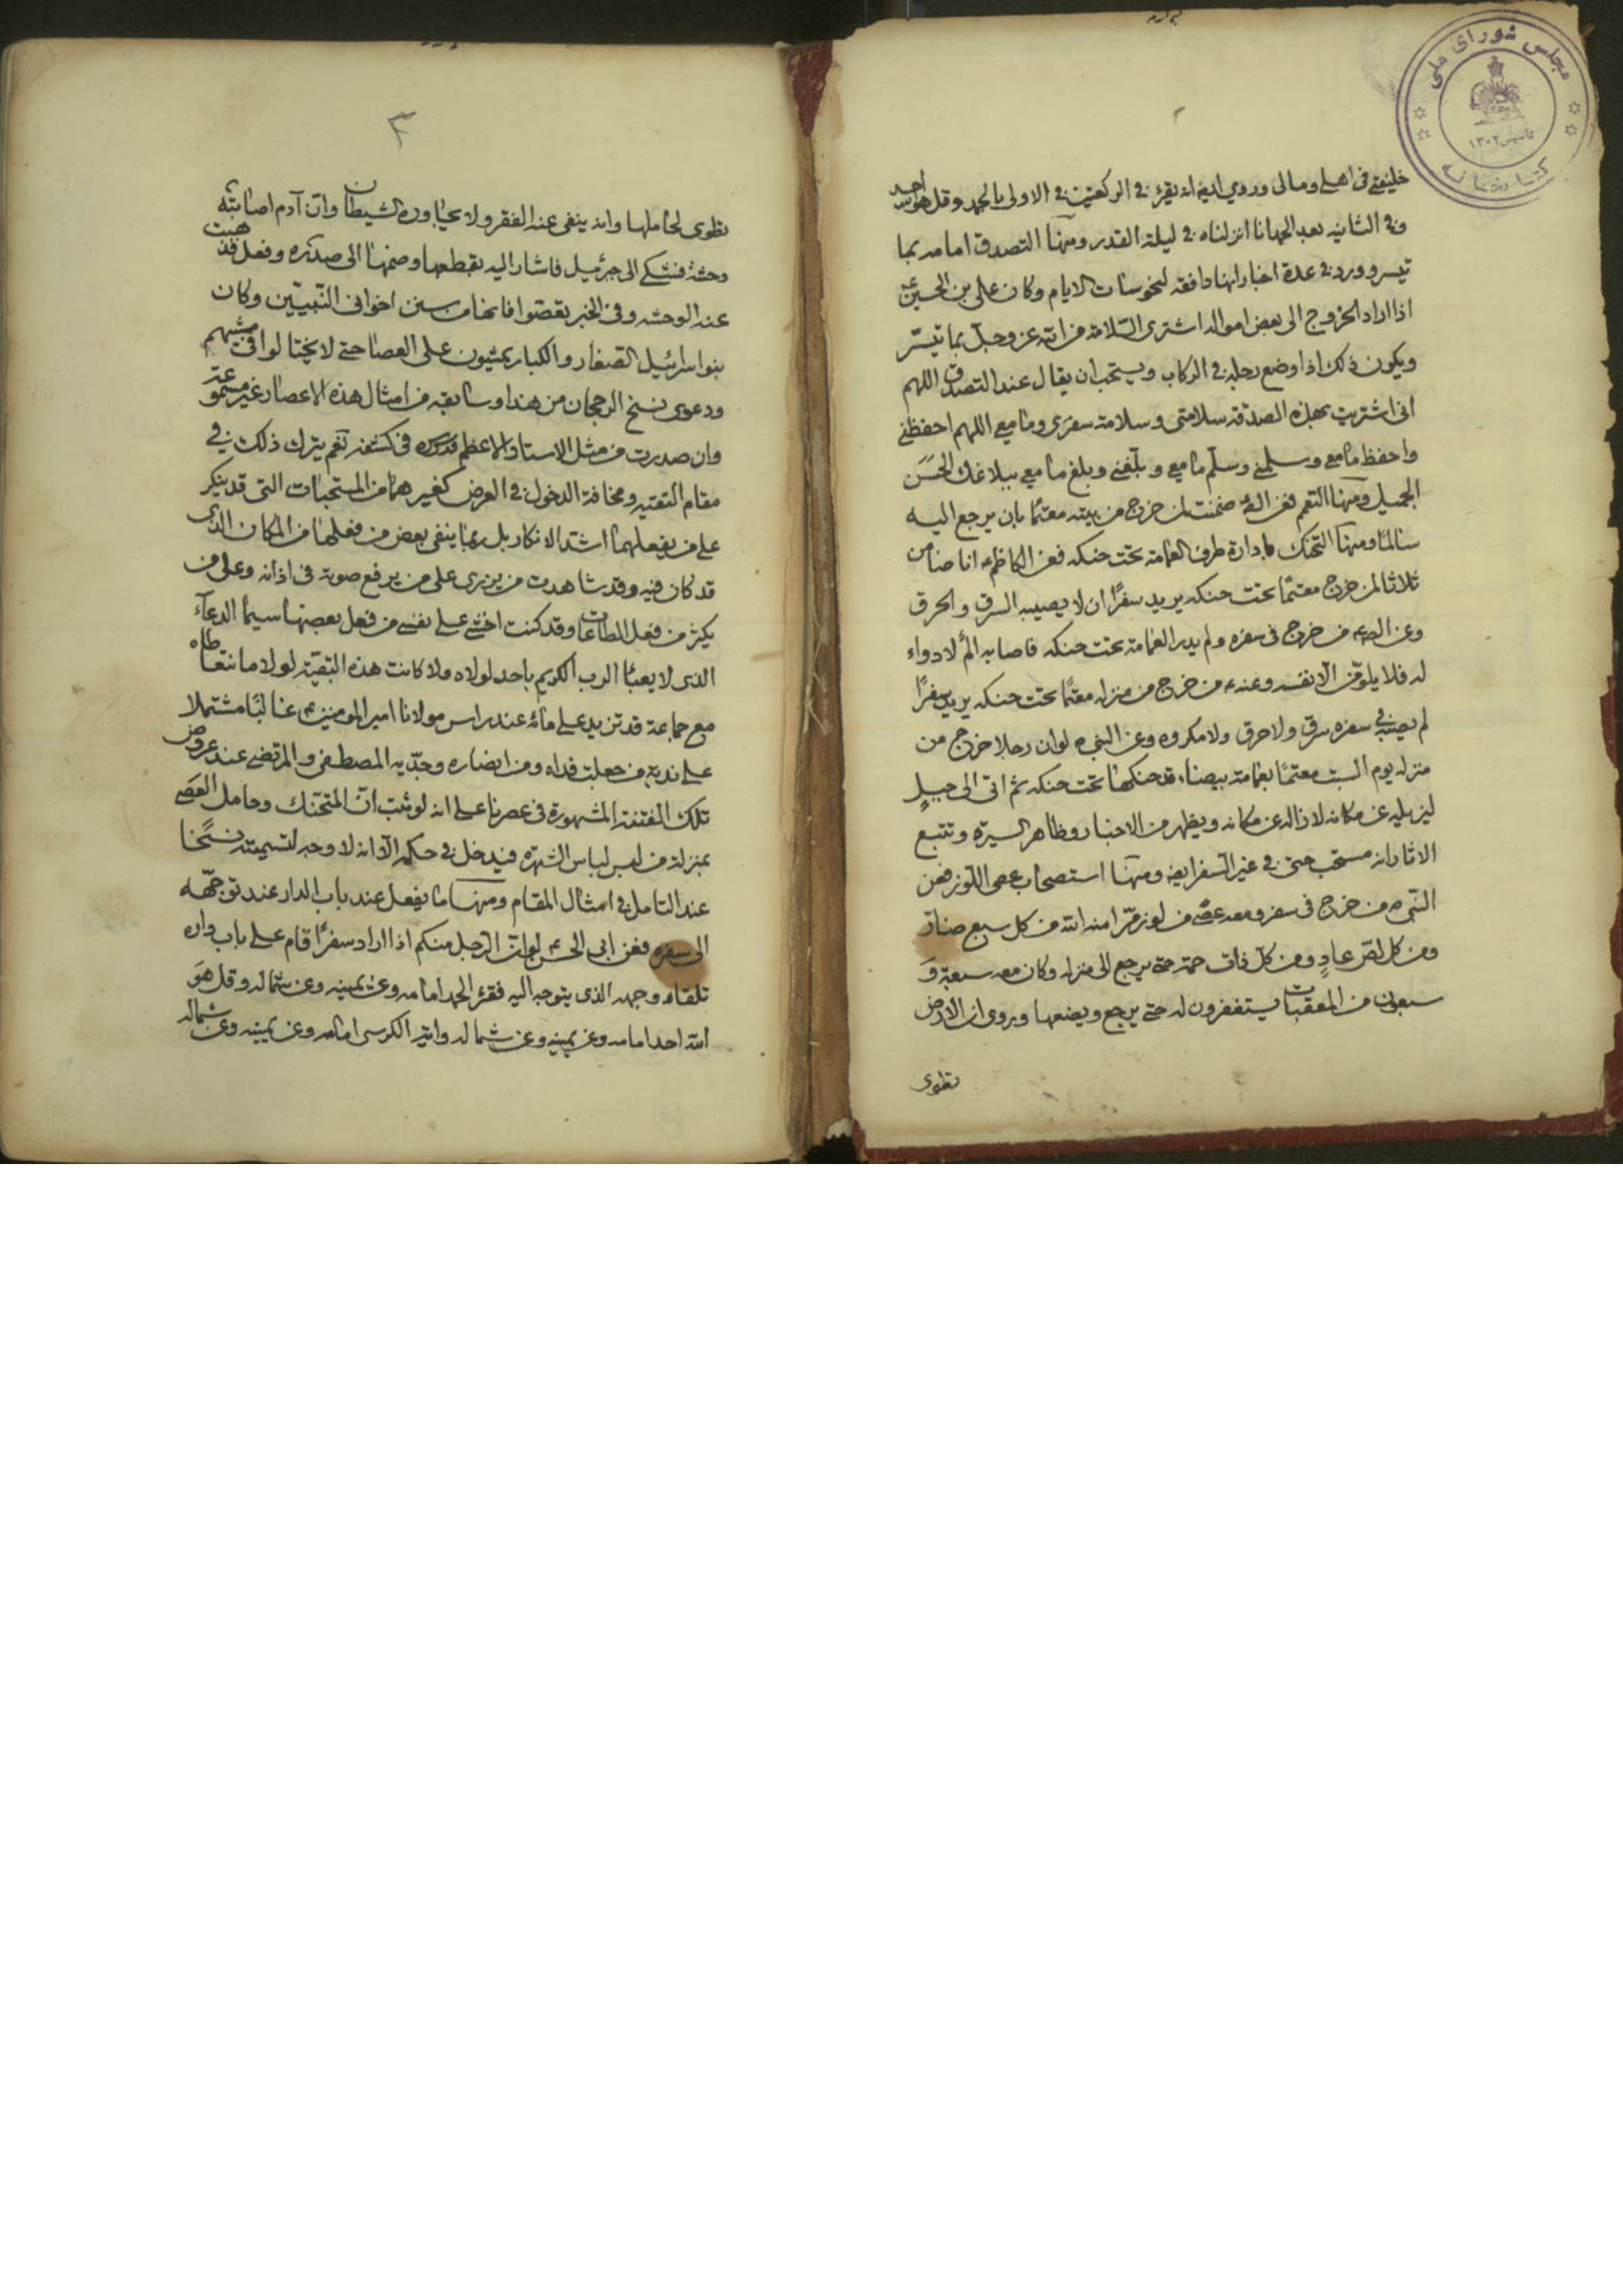 مجلس شورای ملی
تاسیس ۱۳۰۲
کتابخانه
خليفتی فی اهلی ومالی وروی ايض انه يقرء فی الركعتين فی الاولی بالحمد وقل هو الله احد
وفی الثانيه بعد الحمد انا انزلناه فی ليلة القدر ومنها التصدق امامه بما
تيسر وورد فی عدة اخبار انها دافعة لنحوسات الايام وكان علی بن الحسين ع
اذا اراد الخروج الی بعض امواله اشتری السّلامة من الله عز وجل بما تيسّر
ويكون ذلك اذا وضع رجله فی الركاب ويستحب ان يقال عند التصدق اللهم
انی اشتريت بهذه الصدقة سلامتی وسلامة سفری وما معی اللهم احفظنی
واحفظ ما معی وسلمنی وسلّم ما معی وبلّغنی وبلغ ما معی ببلاغك الحسَن
الجميل ومنها التعمم فعن الص ضمنت لمن خرج من بيته معتمًا بان يرجع اليه
سالمًا ومنها التحنك بادارة طرف العمامة تحت حنكه فعن الكاظم ع انا ضامن
ثلاثا لمن خرج معتمًا تحت حنكه يريد سفرًا ان لا يصيبه السرق والحرق
وعن الص ع من خرج فی سفره ولم يدر العمامة تحت حنكه فاصابه المٌ لا دواء
له فلا يلومّن الّا نفسه وعنه ع من خرج من منزله معتمًا تحت حنكه يريد سفرًا
لم يصبه فی سفره سرق ولا حرق ولا مكروه وعن النبی ص لوان رجلا خرج من
منزله يوم السبت معتمًا بعمامة بيضاء قد حنكها تحت حنكه ثم اتی الی جبلٍ
ليزيله عن مكانه لازاله عن مكانه ويظهر من الاخبار وظاهر السيرة وتتبع
الاثار انه مستحب حتی فی غير السفر ايض ومنها استصحاب عصی اللوز فعن
النبی ص من خرج فی سفر ومعه عصًی من لوز مرّ امنه الله من كل سبع ضارّ
ومن كل لصّ عادٍ ومن كلّ ذات حمة حتی يرجع الی منزله وكان معه سبعة وَ
سبعون من المعقبات يستغفرون له حتی يرجع ويضعها وروی ان الارض
تطوی
۳
تطوی لحاملها وانه ينفی عنه الفقر ولا يجاوره الشيطان وان آدم اصابته
وحشة فشكی الی جبرئيل فاشار اليه بقطعها وضمها الی صدره وفعل فذهبت
عنه الوحشه وفی الخبر تعصّوا فانها من سنن اخوانی النّبيّين وكان
بنو اسرائيل الصغار والكبار يمشون علی العصا حتی لا يختالوا فی مشيهم
ودعوی نسخ الرجحان من هذا وسابقه من امثال هذه الاعصار غير مسموعة
وان صدرت من مثل الاستاد الاعظم قدسره فی كشفه نعم يترك ذلك فی
مقام التقيه ومخافة الدخول فی العرض كغيرهما من المستحبات التی قد ينكر
علی من يفعلهما اشد الانكار بل ربما ينفی بعض من فعلها من المكان الذی
قد كان فيه وقد شاهدت من يزری علی من يرفع صوته فی اذانه وعلی من
يكثر من فعل الطاعات وقد كنت اخشی علی نفسی من فعل بعضها سيما الدعآء
الذی لا يعبأ الرب الكريم باحد لولاه ولا كانت هذه البقيّة لولا ما نتعاطاه
مع جماعة قد تزيد علی مائه عند راس مولانا امير المومنين ع غالبًا مشتملا
علی ندبة من جعلت فداه ومن انصاره وجدّيه المصطفی والمرتضی عند عروض
تلك الفتنة المشهورة فی عصرنا علی انه لو ثبت انّ المتحنك وحامل العَصی
بمنزلة من لبس لباس الشهره فيدخل فی حكمه الّا انه لا وجه لتسميته نسخًا
عند التامل فی امثال المقام ومنها ما يفعل عند باب الدار عند توجّهه
الی سفره فعن ابی الحسن ع لو انّ الرّجل منكم اذا اراد سفرًا قام علی باب داره
تلقاء وجهه الذی يتوجه اليه فقرء الحمد امامه وعن يمينه وعن شماله وقل هوَ
الله احد امامه وعن يمينه وعن شماله واية الكرسی امامه وعن يمينه وعن شماله